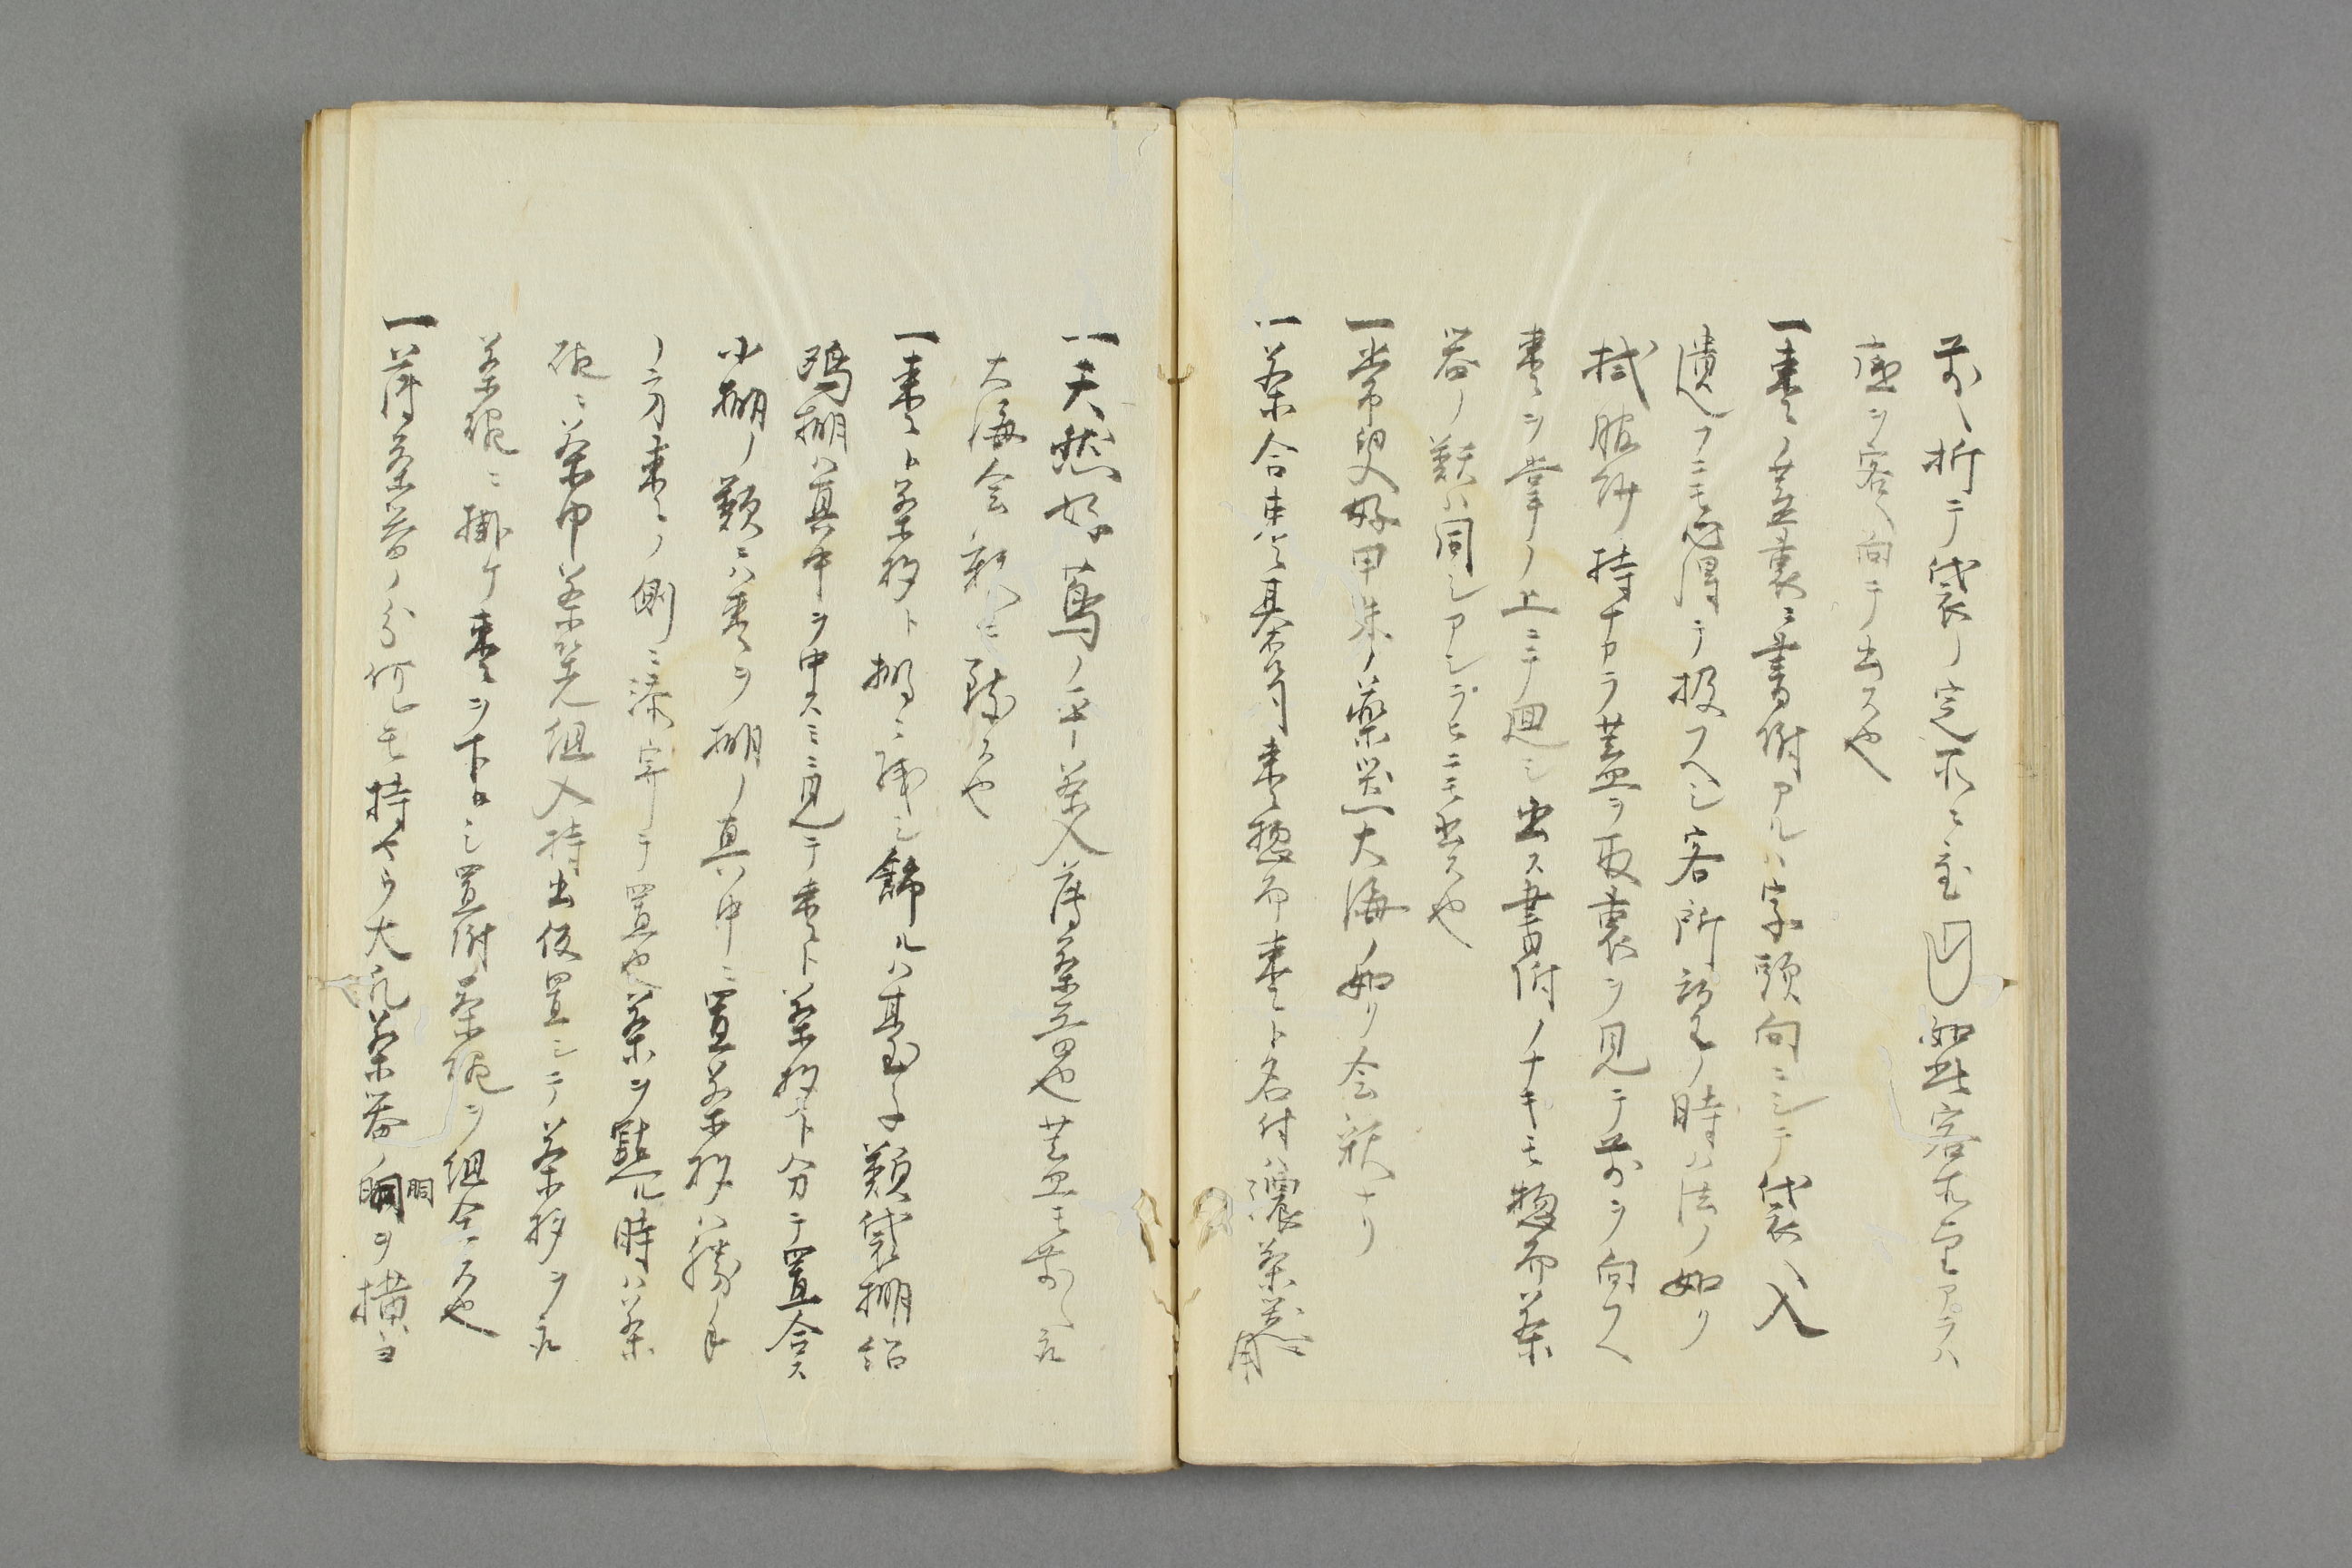 前ヘ折テ袋ノ定木ニ　如此客
底ヲ客ヘ向テ出ス也
一棗ノ蓋裏ニ書附アルハ字頭向ニシテ袋ヘ入
遣フニモ心得テ扱フヘシ客所望ノ時ハ法ノ如ク
拭服紗持ナカラ蓋ヲ取裏ヲ見テ前ヲ向フヘ
棗ヲ掌ノ上ニテ廻シ出ス書付ノナキモ惣而茶
器ノ類ハ同シアシラヒニモ出ス也
一常叟好甲朱ノ薬器大海ノ如ク会釈ナリ
一茶合棗碁笥棗惣而棗ト名付ハ濃茶器用
一天然好蔦ノ平茶入薄茶器也蓋モ前ヘ取
大海会釈ニ致ス也
一棗ト茶杓ト棚ニ残シ飾ルハ臺子類袋棚紹
鴎棚ハ真中ヲ中スミニ見テ棗ト茶杓ト分テ置合ス
小棚ノ類ニハ棗ヲ棚ノ真中ニ置茶杓ハ勝手
ノ方棗ノ側ニ添寄テ置也茶ヲ點ル時ハ茶
碗ニ茶巾茶筅組入持出仮置シテ茶杓ヲ取
茶碗ニ掛ケ棗ヲ下ロシ置附茶碗ヲ組合ス也
一薄茶器ノ分何レモ持ヤウ大尻茶器ノ胴ヲ横ヨ
胴